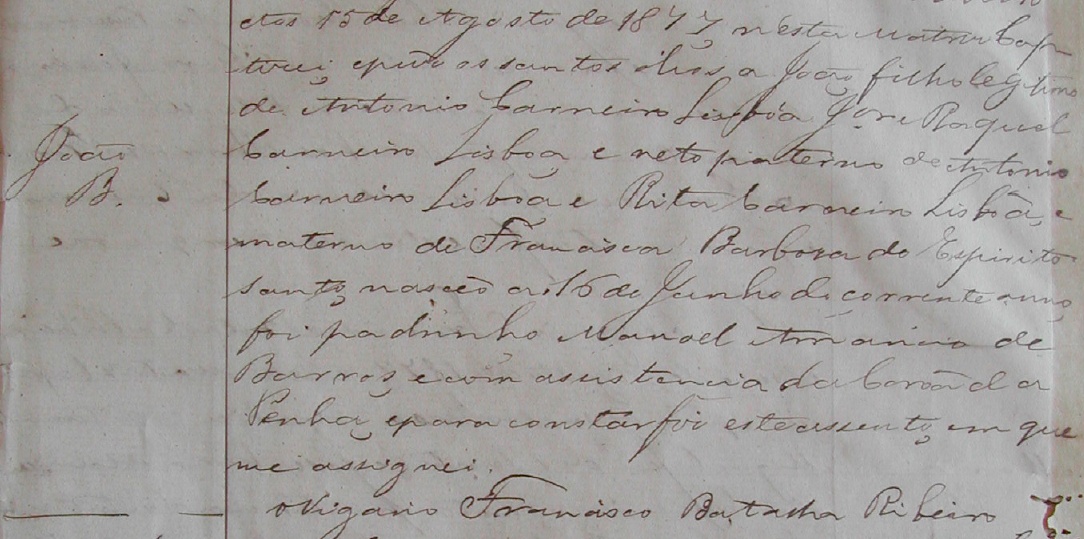 ctos 15 de Agosto de 1877 n'esta Matriz bap
tizei, e puz os santos olios a João filho legitimo
de Antonio Carneiro Lisbôa Jor e Raquel
João
Carneiro Lisboa e neto paterno de Antonio
B.
Carneiro Lisboa e Rita Carneiro Lisbôa, e
materno de Francisca Barbosa do Espirito
santo, nasceo a 16 de Junho do corrente anno,
foi padrinho Manoel Amancio de
Barros, e com assistencia da Corôa da
Penha, e para constar fôi este assento, em que
me assignei.
O Vigario Francisco Ribeiro